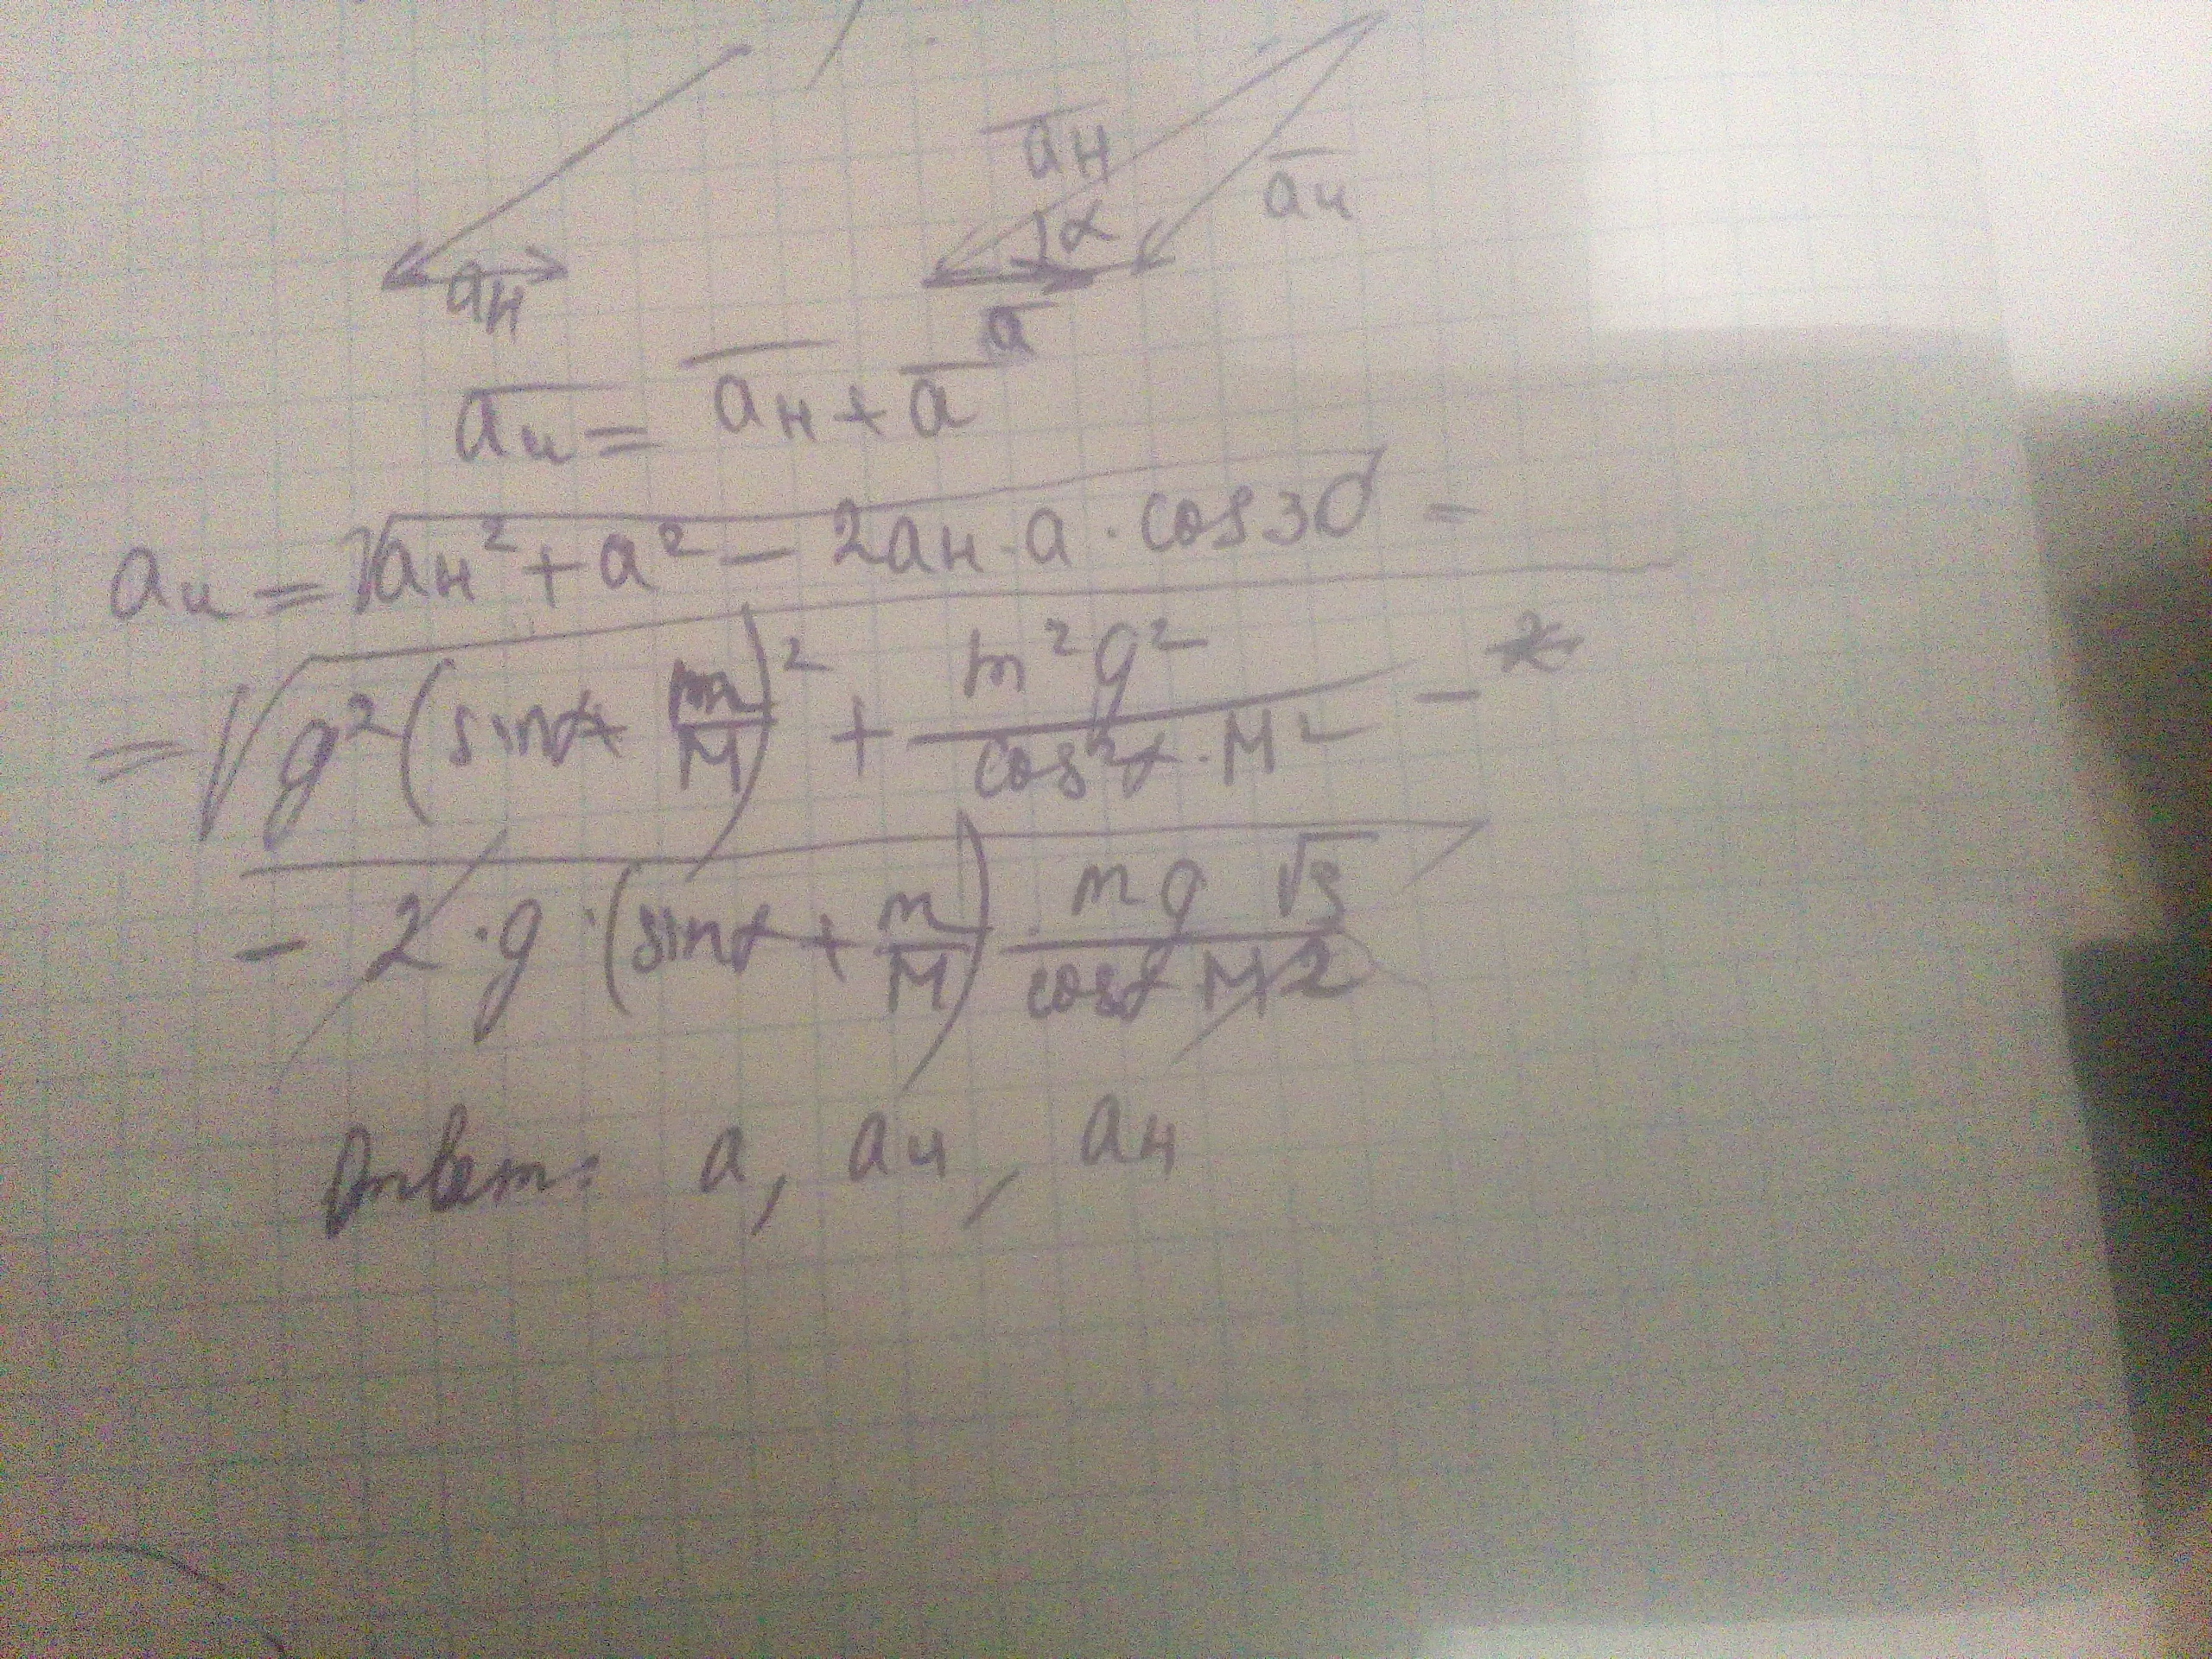 a̅н a̅ч
α
aн
a̅
a̅ч = a̅н + a̅
aч = √(aн² + a² − 2aн · a · cos30° =
= √(g² (sinα + m/M)² + m²g²/(cos²α · M²) −
− 2 · g · (sinα + m/M) · mg √3/(cosα M 2)
Ответ: a, aч, aн